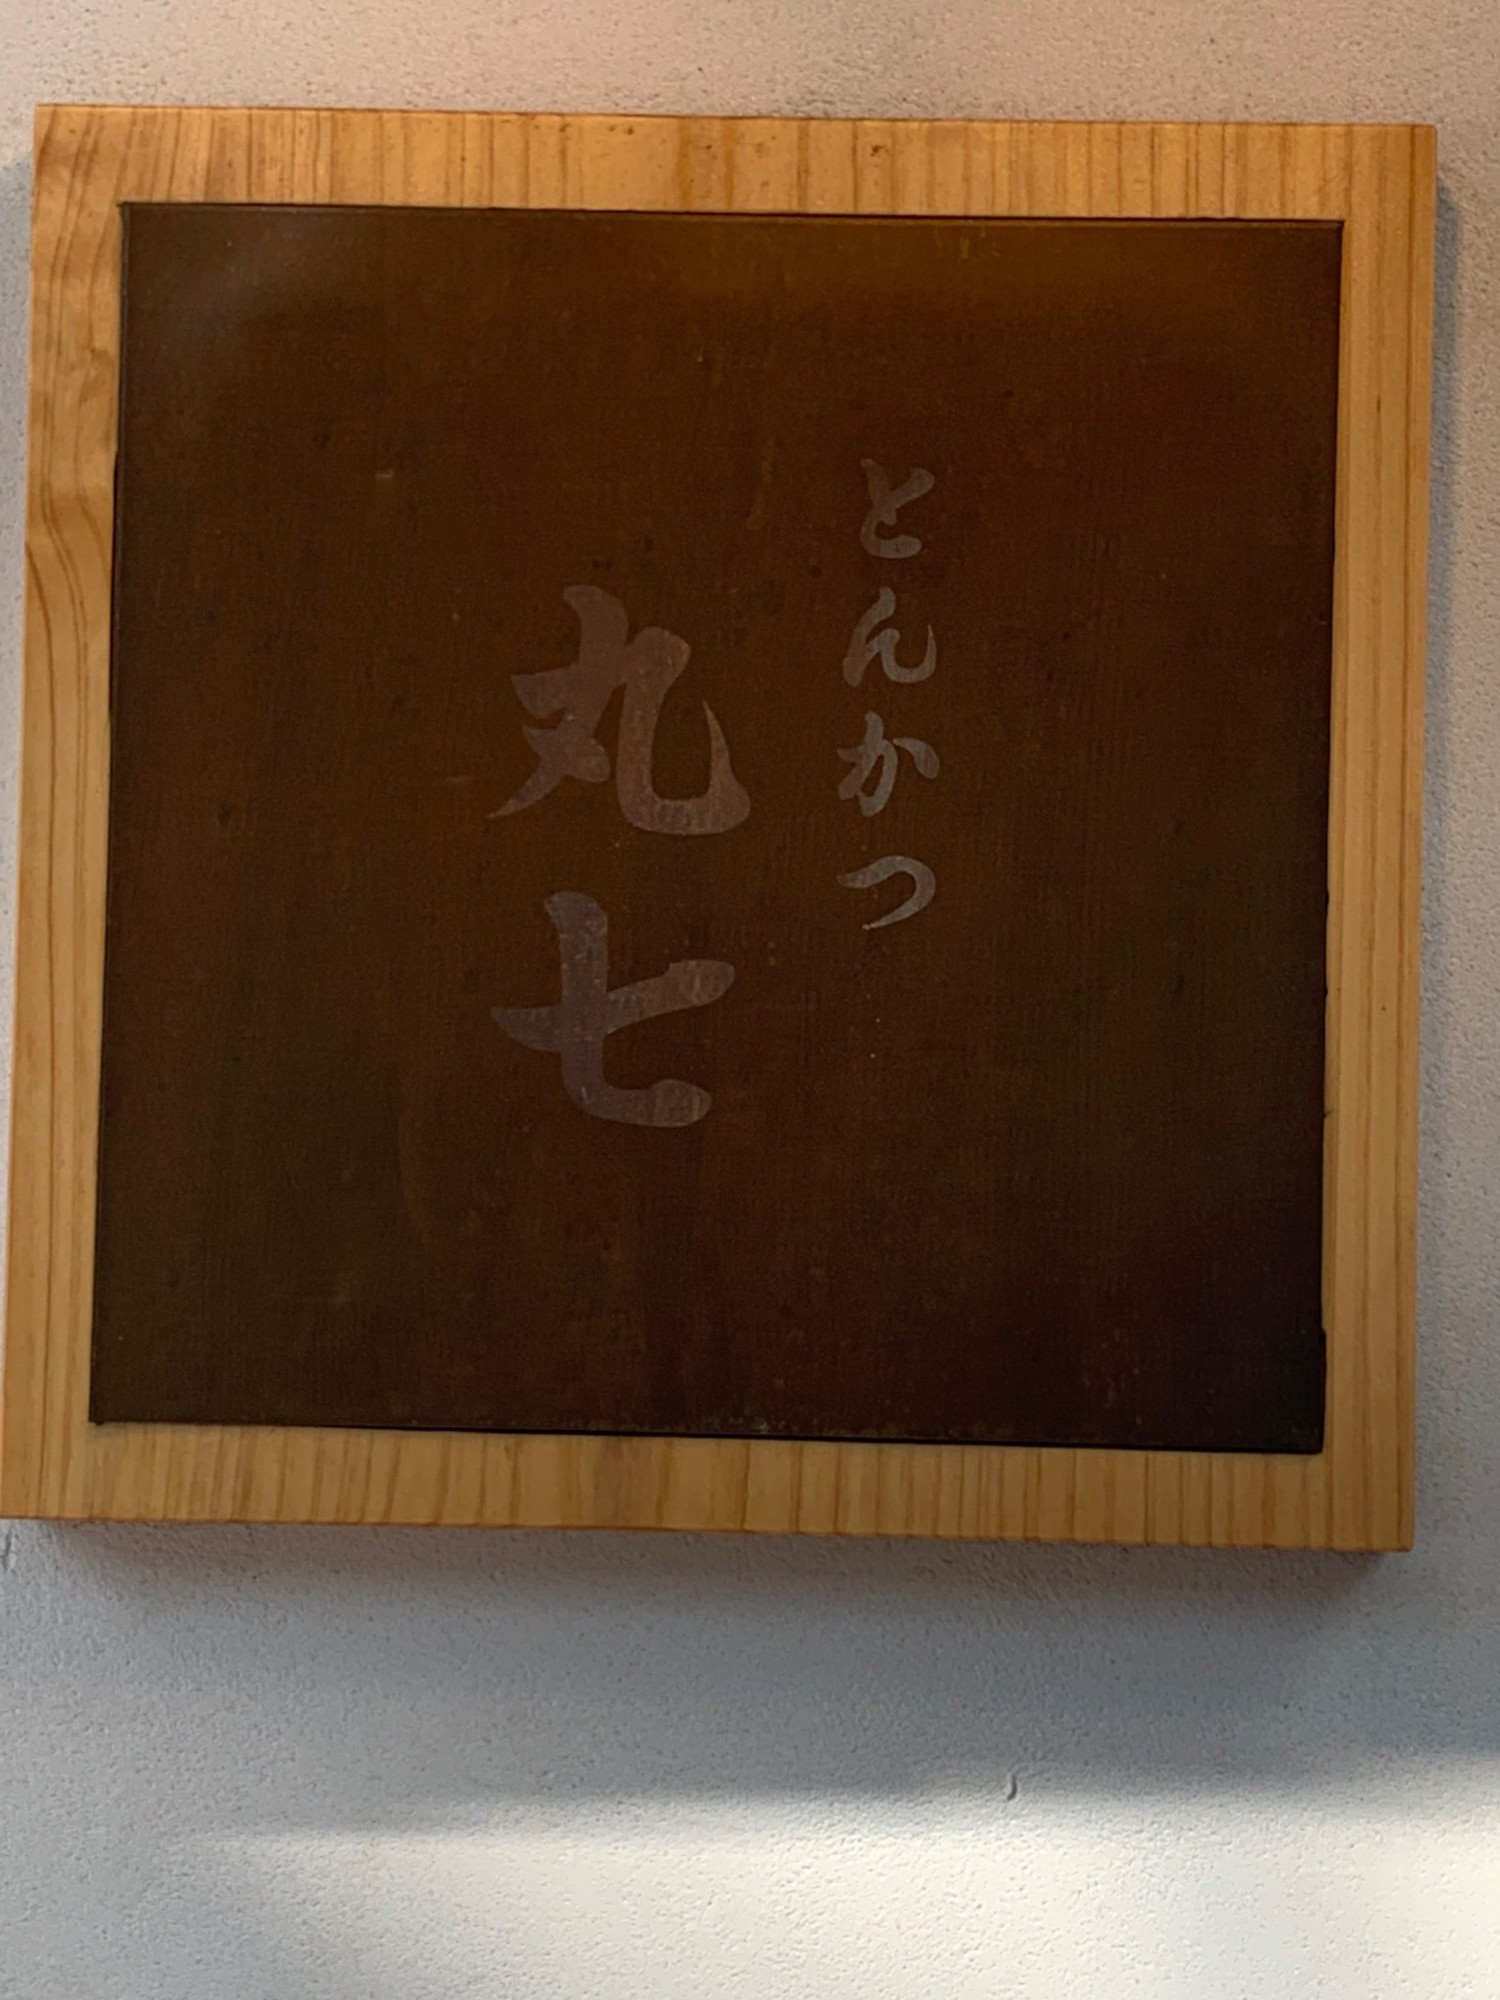 とんかつ
丸七